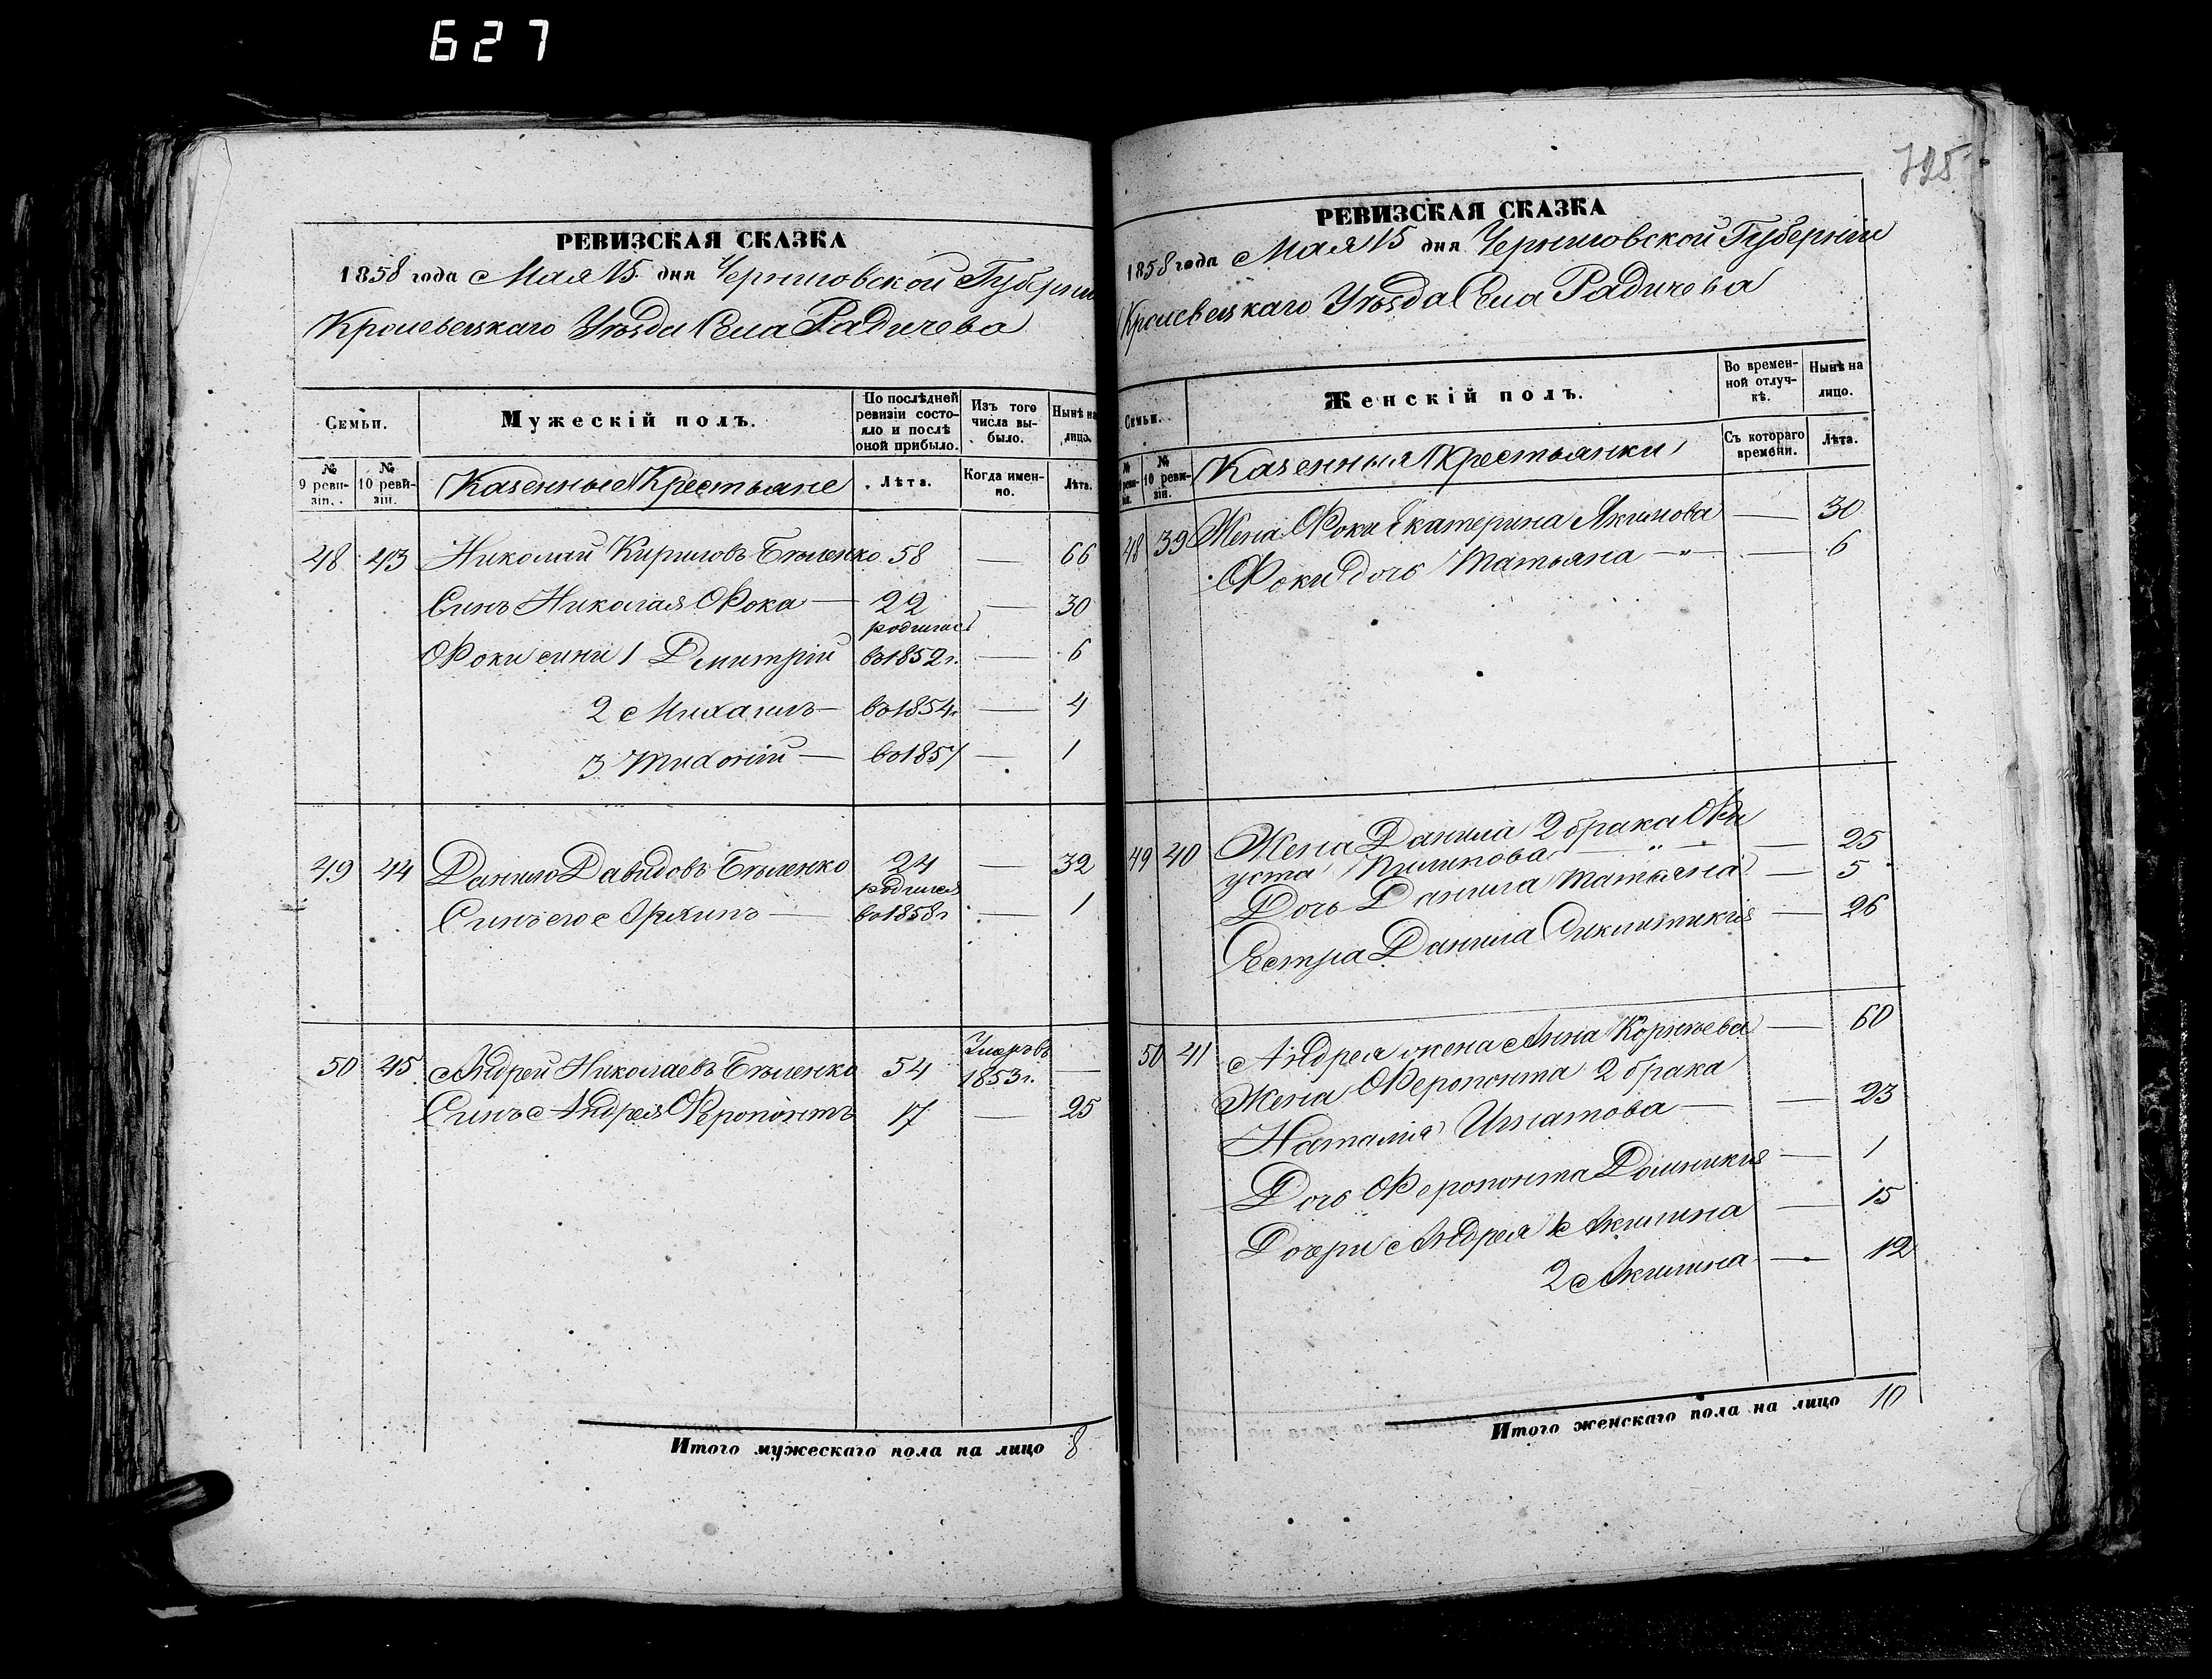 627
РЕВИЗСКАЯ СКАЗКА
1858 года Мая 15 дня Черниговской Губерніи
Кролевецкаго Уѣзда Села Радичева
Семьи.
Мужескій полъ.
По послѣдней ревизіи состояло и послѣ оной прибыло.
Изъ того числа выбыло.
Нынѣ на лицо.
№ 9 ревизіи.
№ 10 ревизіи.
Казенные Крестьяне
Лѣта.
Когда именно.
Лѣта.
48 43 Николай Кириловъ Бѣленко 58 — 66
Синъ Николая Фока — 22 — 30
родились
Фоки сини 1 Дмитрій въ 1852 г. — 6
2 Михаилъ — въ 1854 г — 4
3 Тихоній — въ 1857 — 1
49 44 Данило Давидовъ Бѣленко 24 — 32
родился
Синъ его Архипъ — въ 1858 г — 1
50 45 Андрей Николаевъ Бѣленко 54 Умеръ въ 1853 г. —
Синъ Андрея Феропонтъ 17 — 25
Итого мужескаго пола на лицо 8
725
РЕВИЗСКАЯ СКАЗКА
1858 года Мая 15 дня Черниговской Губерніи
Кролевецкаго Уѣзда Села Радичева
Семьи.
Женскій полъ.
Во временной отлучкѣ.
Нынѣ на лицо.
№ 9 ревизіи.
№ 10 ревизіи.
Казенныя Крестьянки
Съ котораго времени.
Лѣта.
48 39 Жена Фоки Екатерина Якимова — 30
Фоки дочь Татьяна — " — 6
49 40 Жена Данила 2 брака Фе
уста — " — 25
Дочь Данила Татьяна — 5
Сестра Данила — 26
50 41 Андрея жена Анна Корнѣева — 60
Жена Феропонта 2 брака
Наталія Игнатова — — 23
Дочь Феропонта Домникія — 1
Дочери Андрея 1 Акилина — 15
2 Акилина — 12
Итого женскаго пола на лицо 10